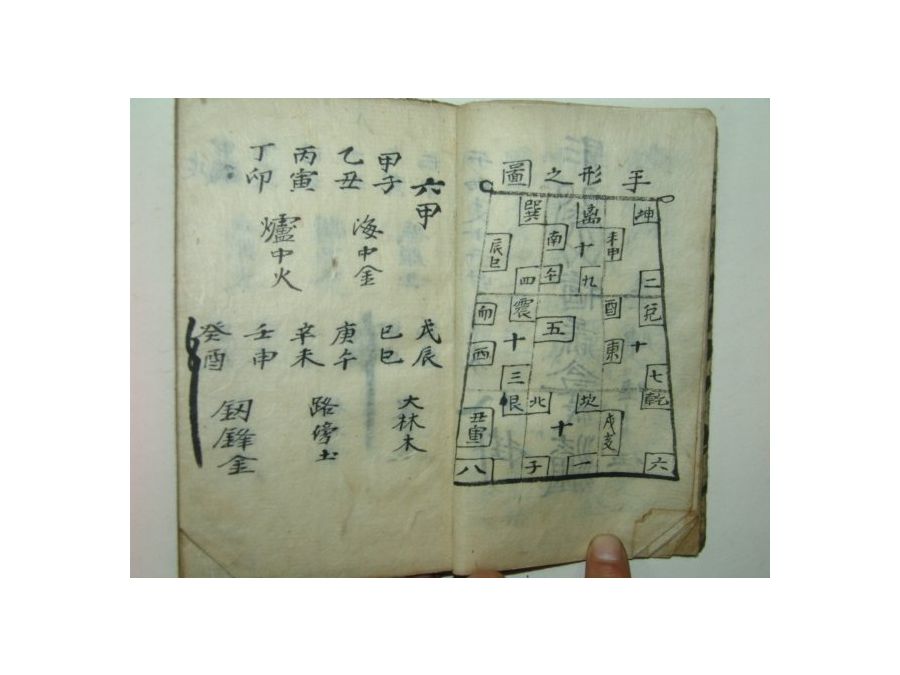 手形之圖
坤
未甲
二
离
十
九
南
午
巽
辰巳
四
兌
酉
東
十
七
五
震
卯
西
十
三
乾
戌亥
六
坎
北
十
一
子
艮
丑寅
八
六甲
甲子
乙丑
海中金
丙寅
丁卯
爐中火
戊辰
己巳
大林木
庚午
辛未
路傍土
壬申
癸酉
釼鋒金